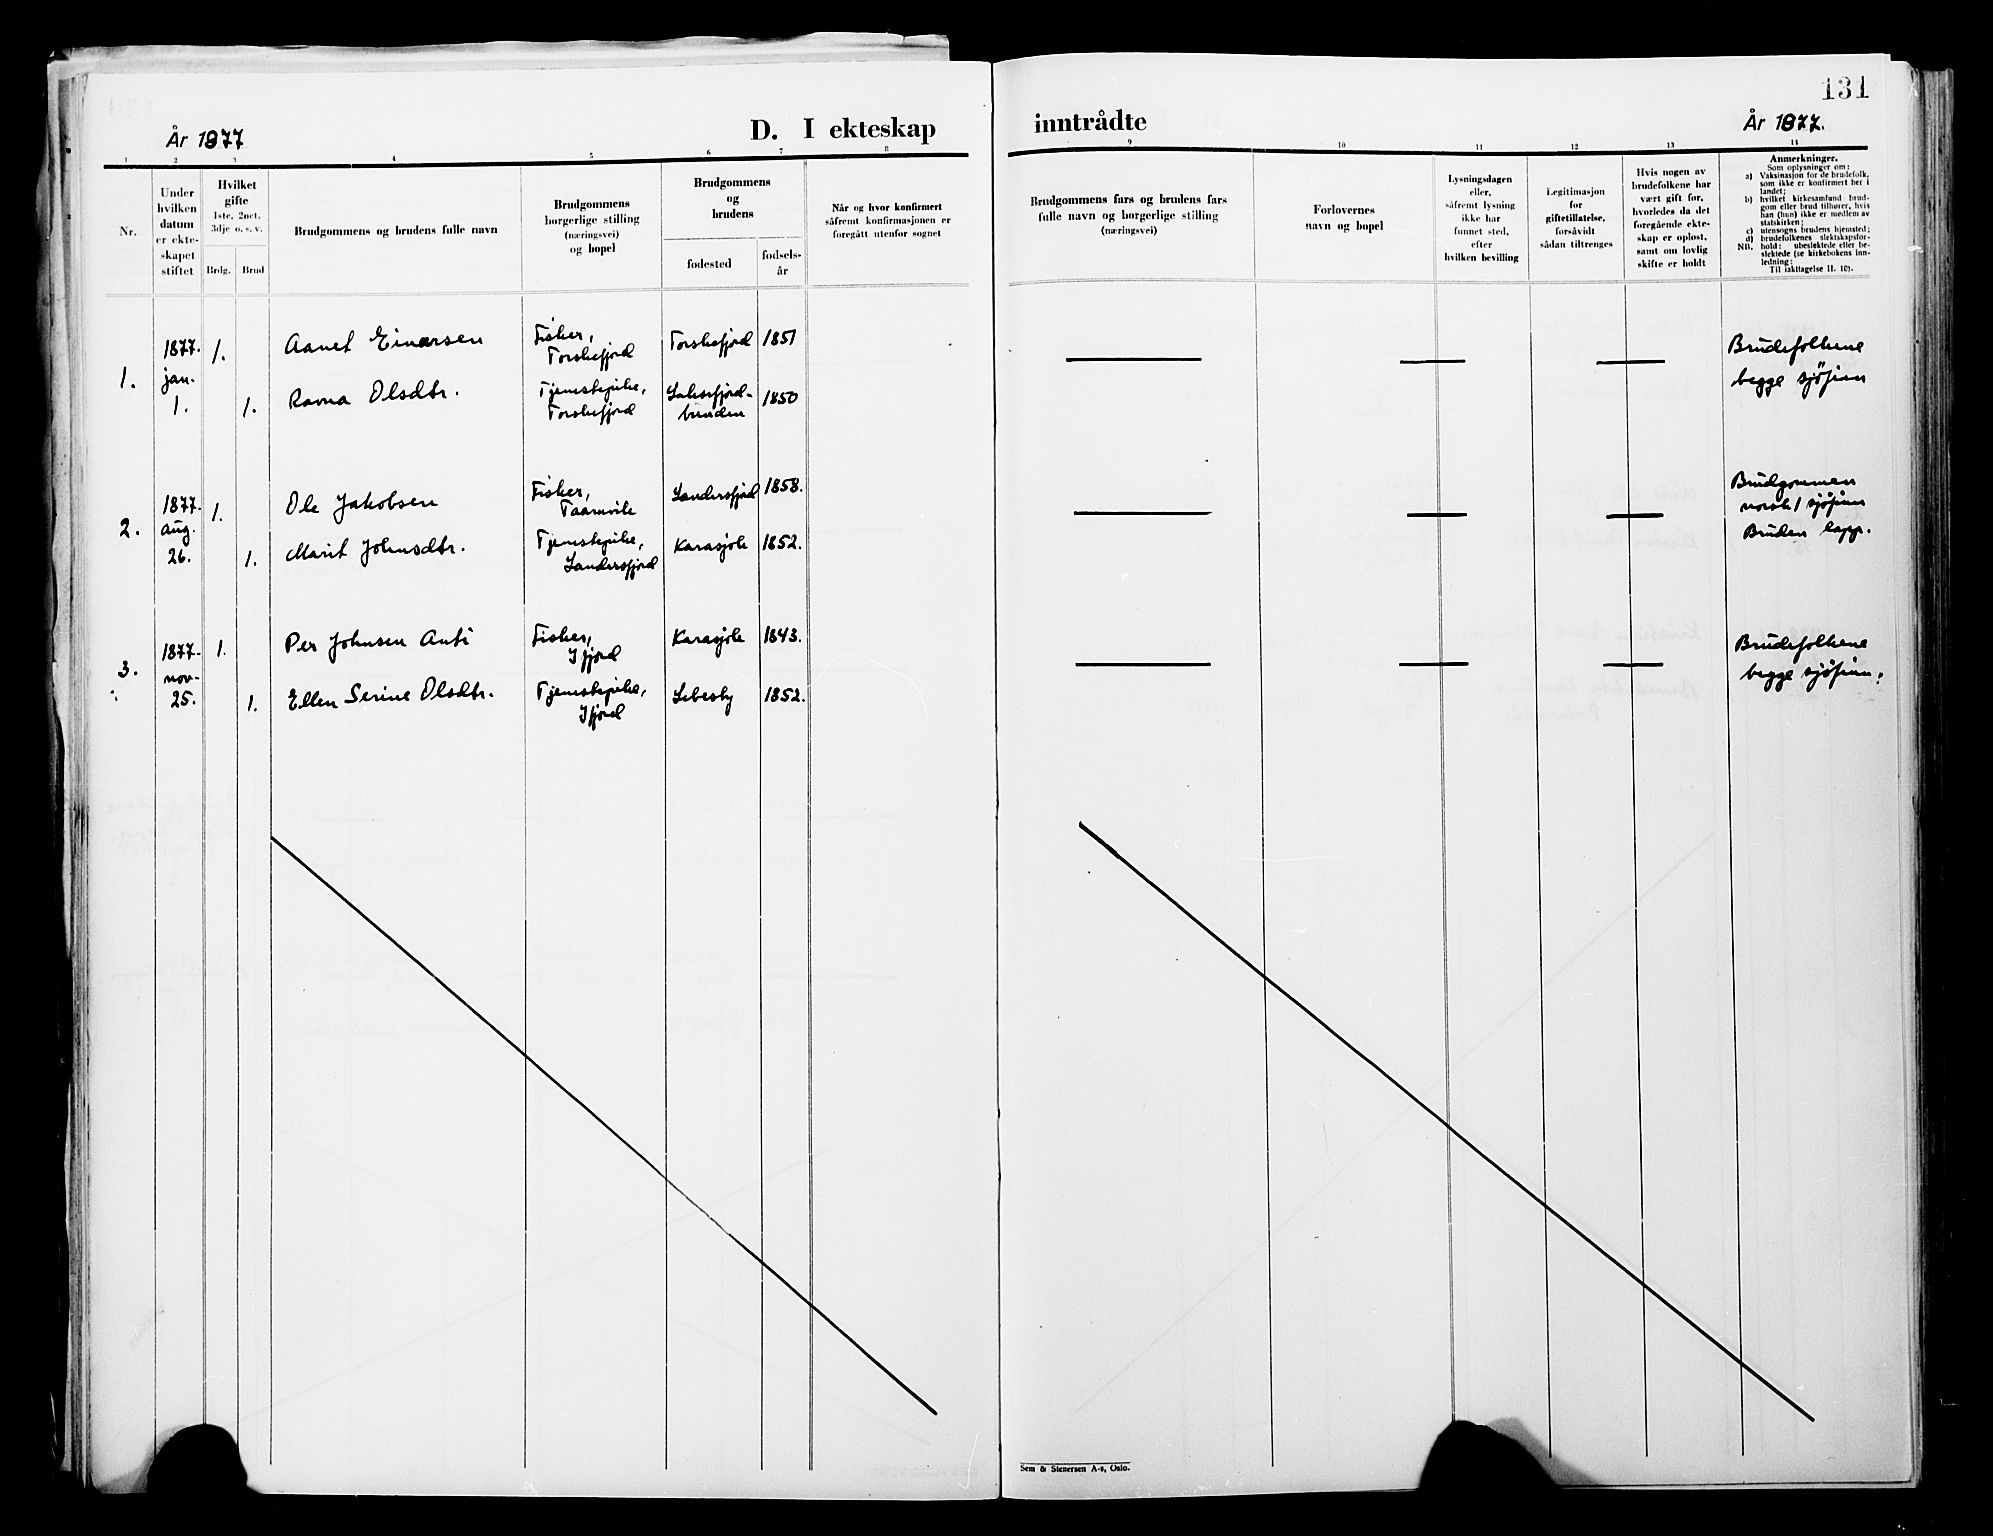 131
År 1877
D. I ekteskap
inntrådte
År 1877.
1 2 3 4 5 6 7 8
9 10 11 12 13 14
Nr.
Under
hvilken
datum
er ekte-
skapet
stiftet
Hvilket
gifte
1ste, 2net,
3dje o. s. v.
Brdg. Brud
Brudgommens og brudens fulle navn
Brudgommens
borgerlige stilling
(næringsvei)
og bopel
Brudgommens
og
brudens
fødested
fødsels-
år
Når og hvor konfirmert
såfremt konfirmasjonen er
foregått utenfor sognet
Brudgommens fars og brudens fars
fulle navn og borgerlige stilling
(næringsvei)
Forlovernes
navn og bopel
Lysningsdagen
eller,
såfremt lysning
ikke har
funnet sted,
efter
hvilken bevilling
Legitimasjon
for
giftetillatelse,
forsåvidt
sådan tiltrenges
Hvis nogen av
brudefolkene har
vært gift før,
hvorledes da det
foregående ekte-
skap er opløst,
samt om lovlig
skifte er holdt
Anmerkninger.
Som oplysninger om:
a) Vaksinasjon for de brudefolk,
som ikke er konfirmert her i
landet;
b) hvilket kirkesamfund brud-
gom eller brud tilhører, hvis
han (hun) ikke er medlem av
statskirken;
c) utensogns brudens hjemsted;
d) brudefolkenes slektskapsfor-
NB. hold: ubeslektede eller be-
slektede (se kirkebokens inn-
ledning:
Til iakttagelse II. 10).
1.
1877.
jan.
1.
1. Aanet Einarsen
Fisker,
Torskefjord
Torskefjord 1851
1. Ravna Olsdtr.
Tjenestepike,
Torskefjord
Laksefjord-
bunden
1850
Brudefolkene
begge sjøfinn
2.
1877.
aug.
26.
1. Ole Jakobsen
Fisker,
Taarnvik
Landersfjord 1858.
1. Marit Johnsdtr.
Tjenestepike,
Landersfjord
Karasjok 1852.
Brudgommen
norsk / sjøfinn
Bruden lapp.
3.
1877.
nov.
25.
1. Per Johnsen Anti
Fisker,
Ifjord
Karasjok 1843.
1. Ellen Serine Olsdtr.
Tjenestepike,
Ifjord
Lebesby 1852.
Brudefolkene
begge sjøfinn.
Sem & Stenersen A-s, Oslo.